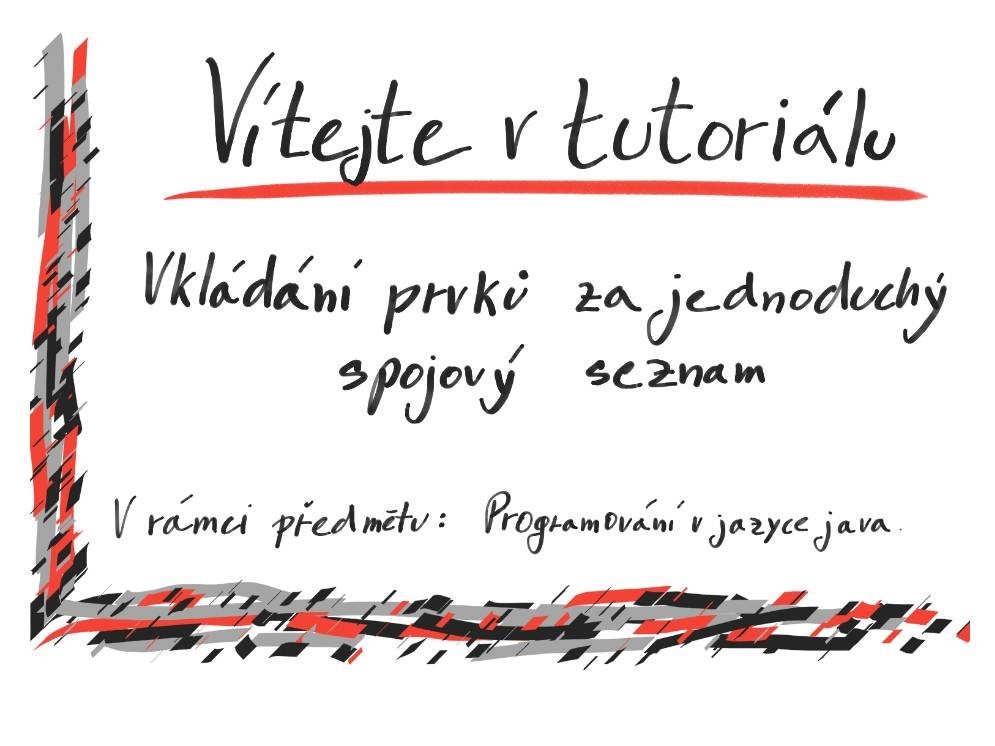 Vítejte v tutoriálu
Vkládání prvků za jednoduchý
spojový seznam
V rámci předmětu: Programování v jazyce java.